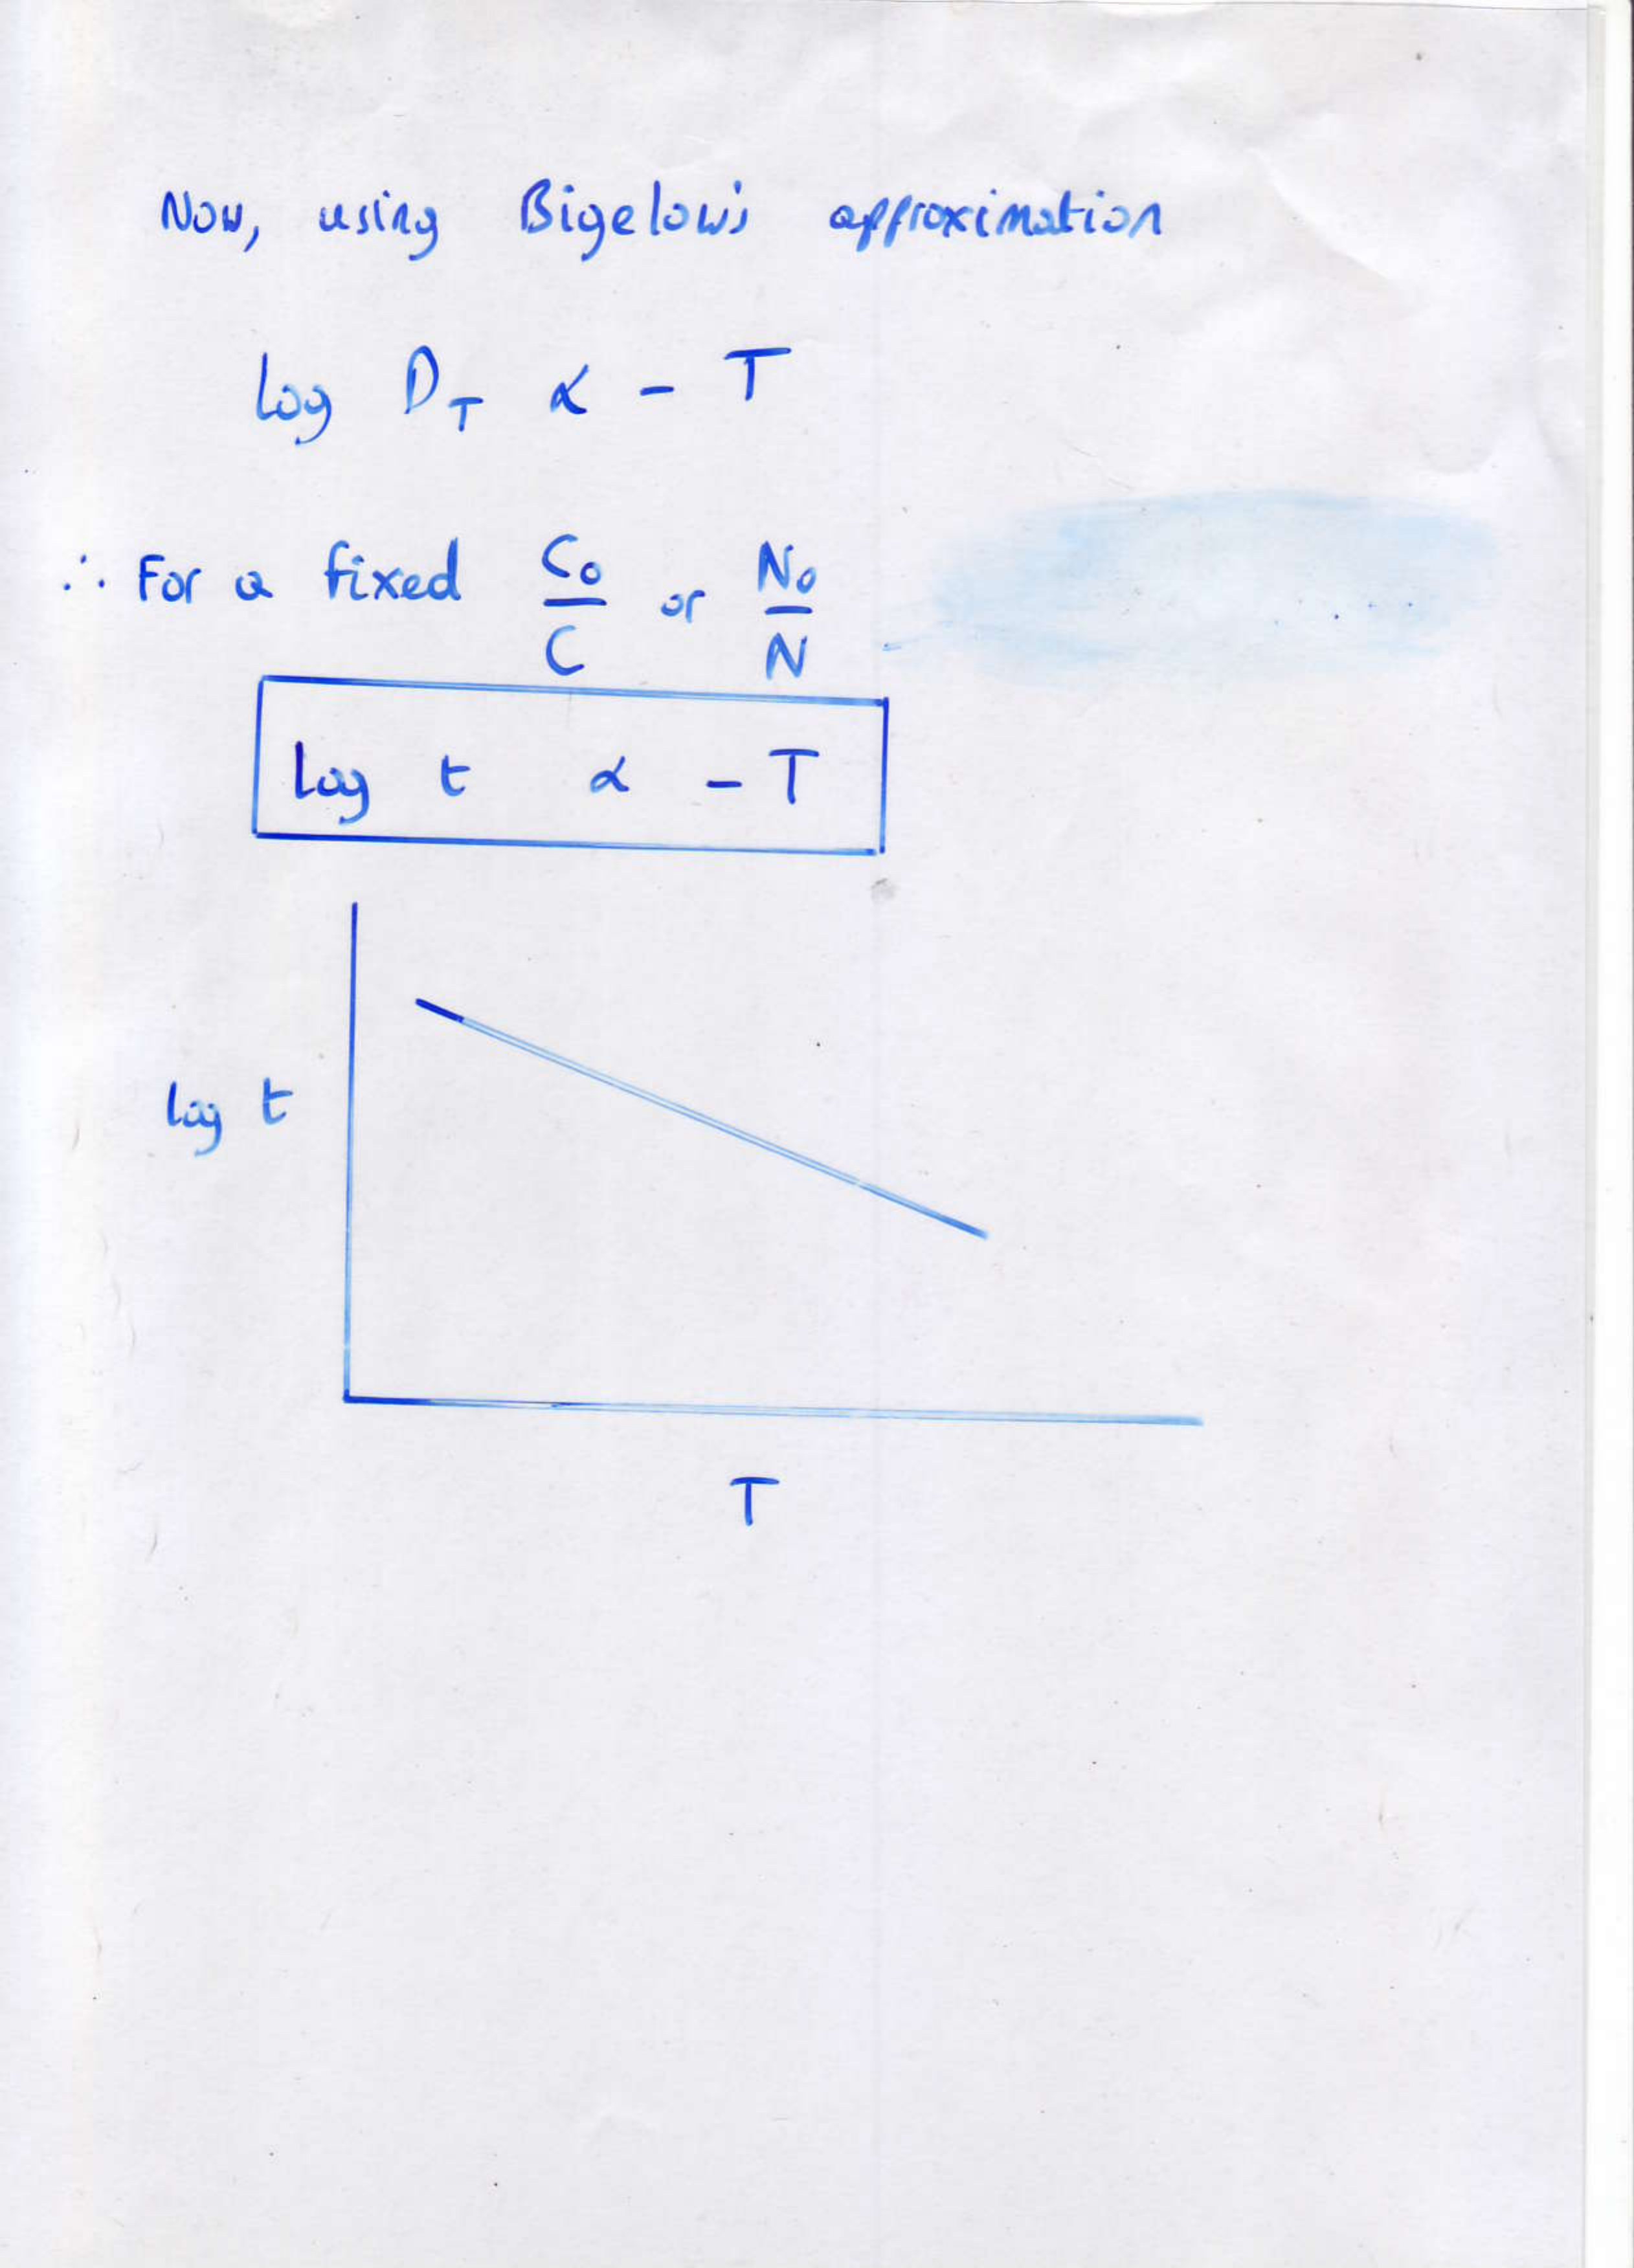 Now, using Bigelow's approximation
log D_T ∝ - T
∴ For a fixed C₀/C or N₀/N
log t ∝ - T
log t
T